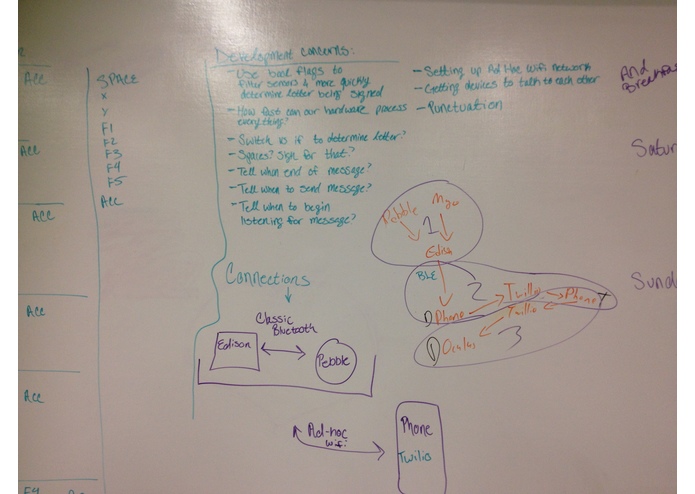 Acc
Acc
Acc
Acc
Acc
F4
SPACE
X
Y
F1
F2
F3
F4
F5
Acc
Development concerns:
- Use bool flags to
filter sensors & more quickly
determine letter being signed
- How fast can our hardware process
everything?
- Switch vs if to determine letter?
- Spaces? Sign for that?
- Tell when end of message?
- Tell when to send message?
- Tell when to begin
listening for message?
- Setting up Ad Hoc Wifi network
- Getting devices to talk to each other
- Punctuation
And
Breakfas
Satur
Sund
Pebble Myo
1
Edison
BLE
2
Phone
Twilio
Phone
Twilio
Oculus
3
Connections
Classic
Bluetooth
Edison
Pebble
Ad-hoc
wifi
Phone
Twilio